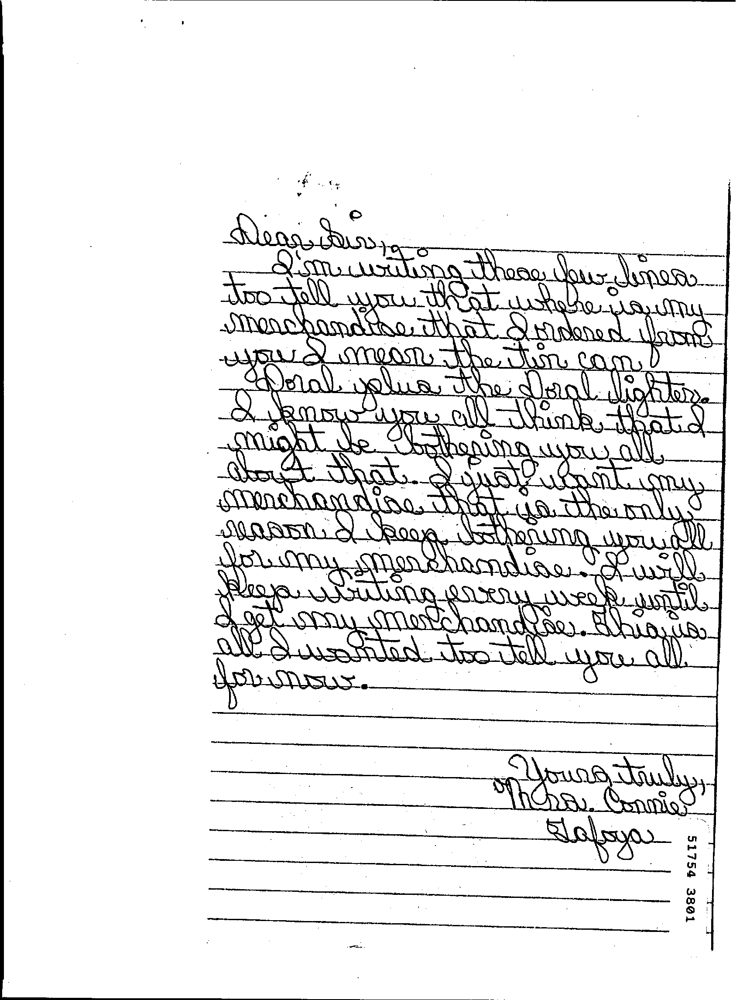 Dear Sir,
I'm writing these few lines
too tell you that where is my
merchandise that I ordered from
you I mean the tin can
Doral plus the Doral lighter.
I know you all think that I
might be bothering you all
about that. I just want my
merchandise that is the only
reason I keep bothering you all
for my merchandise. I will
keep writing every week until
I get my merchandise. This is
all I wanted too tell you all
for now.
Yours truly,
Mrs. Connie
Tafoya
51754 3801